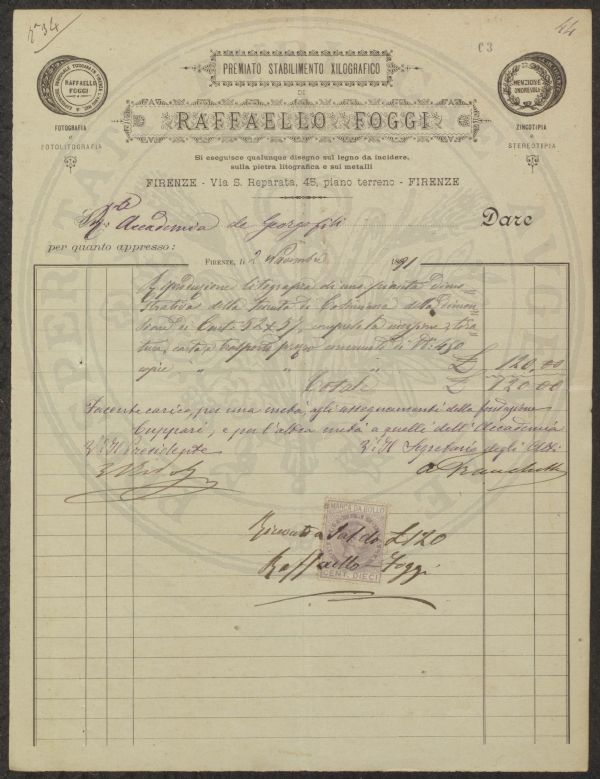 n° 34
44
C3
PREMIATO STABILIMENTO XILOGRAFICO
DI
RAFFAELLO FOGGI
RAFFAELLO
FOGGI
MENZIONE
ONOREVOLE
FOTOGRAFIA
e
FOTOLITOGRAFIA
ZINCOTIPIA
e
STEREOTIPIA
Si eseguisce qualunque disegno sul legno da incidere,
sulla pietra litografica e sui metalli
FIRENZE - Via S. Reparata, 45, piano terreno - FIRENZE
Accademia de Georgofili Dare
per quanto appresso:
FIRENZE, li 2 Novembre 1891
Reproduzione litografica di una pianta dimo=
strativa della Tenuta di della dimen=
sione di Carta 52 x 37, compreso incisione, tira=
tura, carta e trasporto prezzo di N: 450
copie " " " £ 120,00
Totale £ 120.00
Facente carico, per una metà, agli assegnamenti della fondazione
Cuppari, e per l'altra metà a quelli dell'Accademia
Il Presidente Il Segretario degli Atti
MARCA DA BOLLO
Ricevuto a Saldo £ 120
Raffaello Foggi
CENT. DIECI